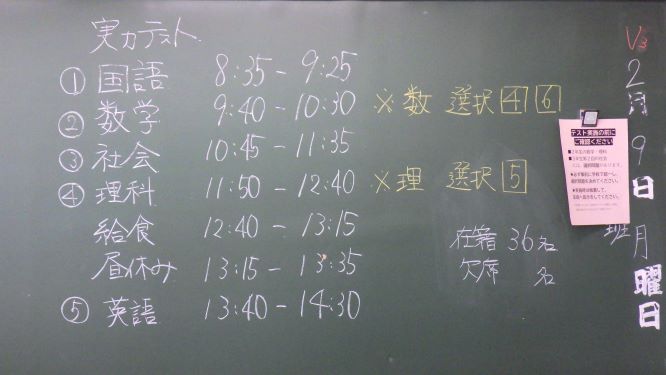 実力テスト
① 国語 8:35 - 9:25
② 数学 9:40 - 10:30 ※数 選択 4 6
③ 社会 10:45 - 11:35
④ 理科 11:50 - 12:40 ※理 選択 5
給食 12:40 - 13:15
昼休み 13:15 - 13:35
⑤ 英語 13:40 - 14:30
在籍 36名
欠席 名
V3
2月9日
月曜日
班
テスト実施の前に
ご確認ください